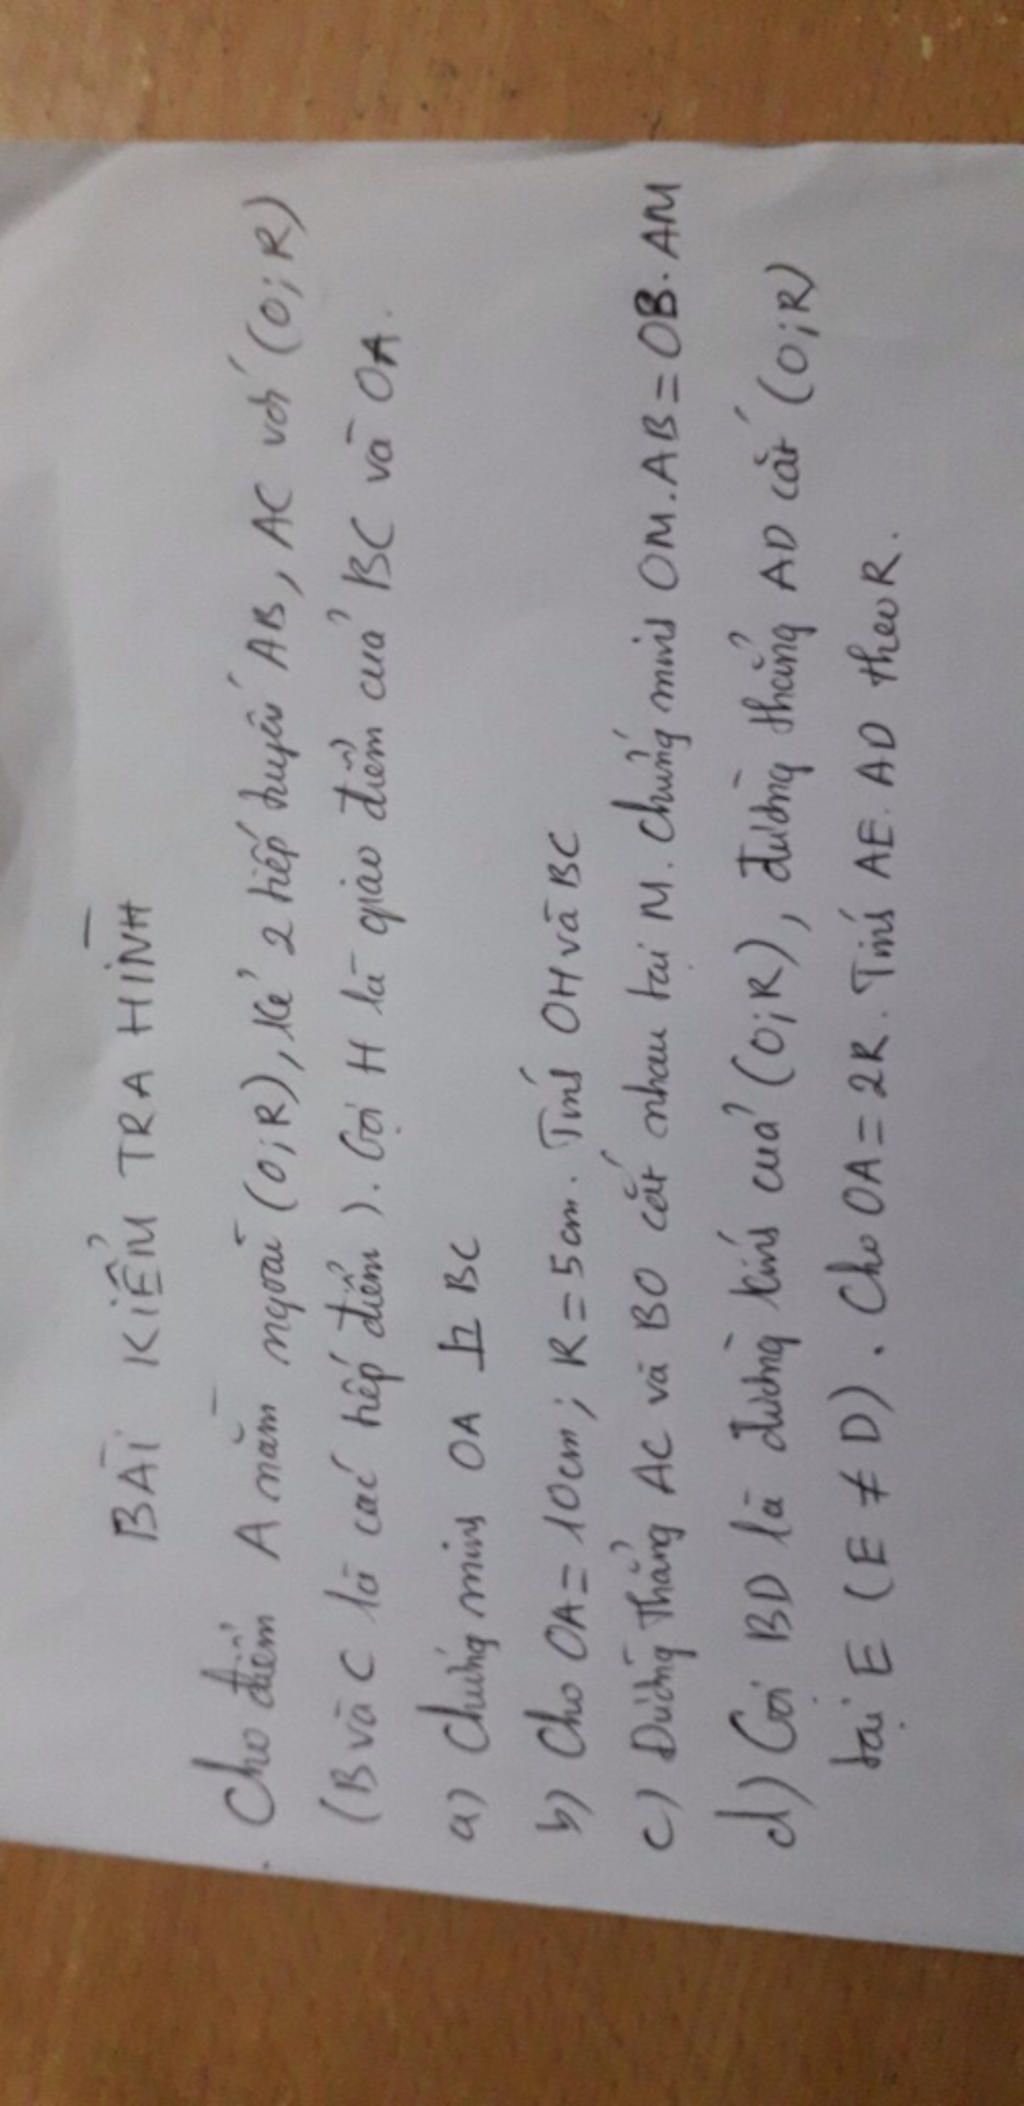 BÀI KIỂM TRA HÌNH
. Cho điểm A nằm ngoài (O;R), kẻ 2 tiếp tuyến AB, AC với (O;R)
(B và C là các tiếp điểm). Gọi H là giao điểm của BC và OA.
a) Chứng minh OA ⊥ BC
b) Cho OA = 10cm; R = 5cm. Tính OH và BC
c) Đường thẳng AC và BO cắt nhau tại M. Chứng minh OM.AB = OB.AM
d) Gọi BD là đường kính của (O;R), đường thẳng AD cắt (O;R)
tại E (E ≠ D). Cho OA = 2R. Tính AE.AD theo R.